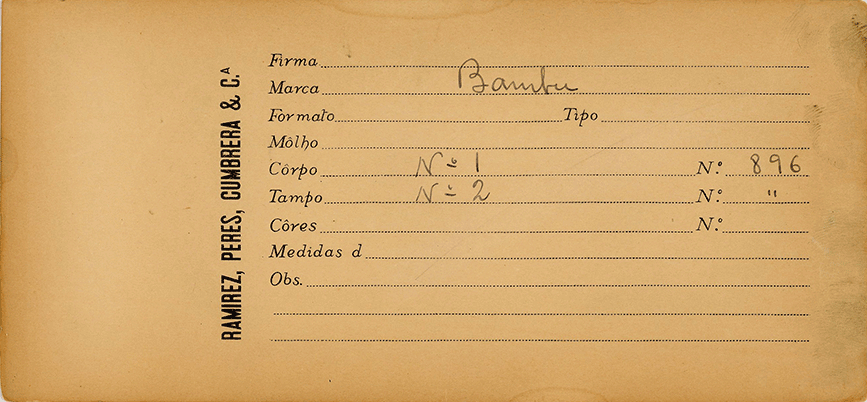 RAMIREZ, PERES, CUMBRERA & C.ᴬ
Firma
Marca Bambu
Formato Tipo
Môlho
Côrpo Nº 1 N.º 896
Tampo Nº 2 N.º "
Côres N.º
Medidas d
Obs.